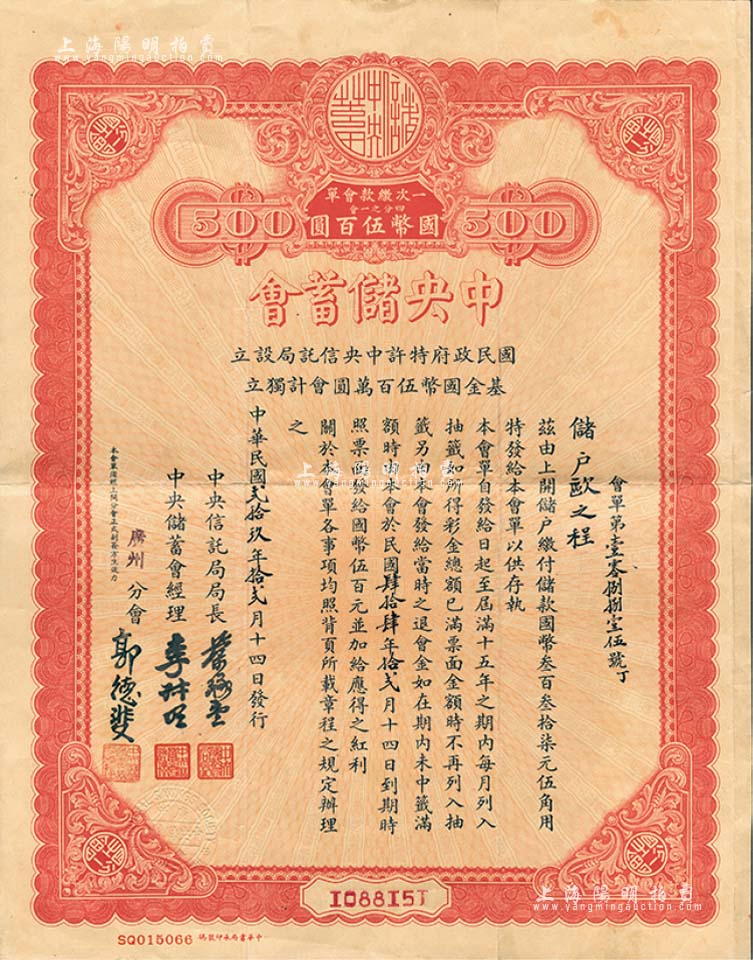 上海陽明拍賣
www.yangmingauction.com
中央儲蓄會
一次繳款會單
四分之一會
國幣伍百圓
500
500
中央儲蓄會
國民政府特許中央信託局設立
基金國幣伍百萬圓會計獨立
會單第壹零捌捌壹伍號丁
儲戶歐之程
茲由上開儲戶繳付儲款國幣叁百叁拾柒元伍角用
特發給本會單以供存執
本會單自發給日起至屆滿十五年之期內每月列入
抽籤如所得彩金總額已滿票面金額時不再列入抽
籤另由本會發給當時之退會金如在期內未中籤滿
額時由本會於民國肆拾肆年拾弍月十四日到期時
照票面發給國幣伍百元並加給應得之紅利
關於本會單各事項均照背頁所載章程之規定辦理
之
中華民國弍拾玖年拾弍月十四日發行
中央信託局局長
中央儲蓄會經理
廣州 分會
郭德斐
上海陽明拍賣
www.yangmingauction.com
I088I5J
上海陽明拍賣
www.yangmingauction.com
SQ015066 中華書局承印號碼